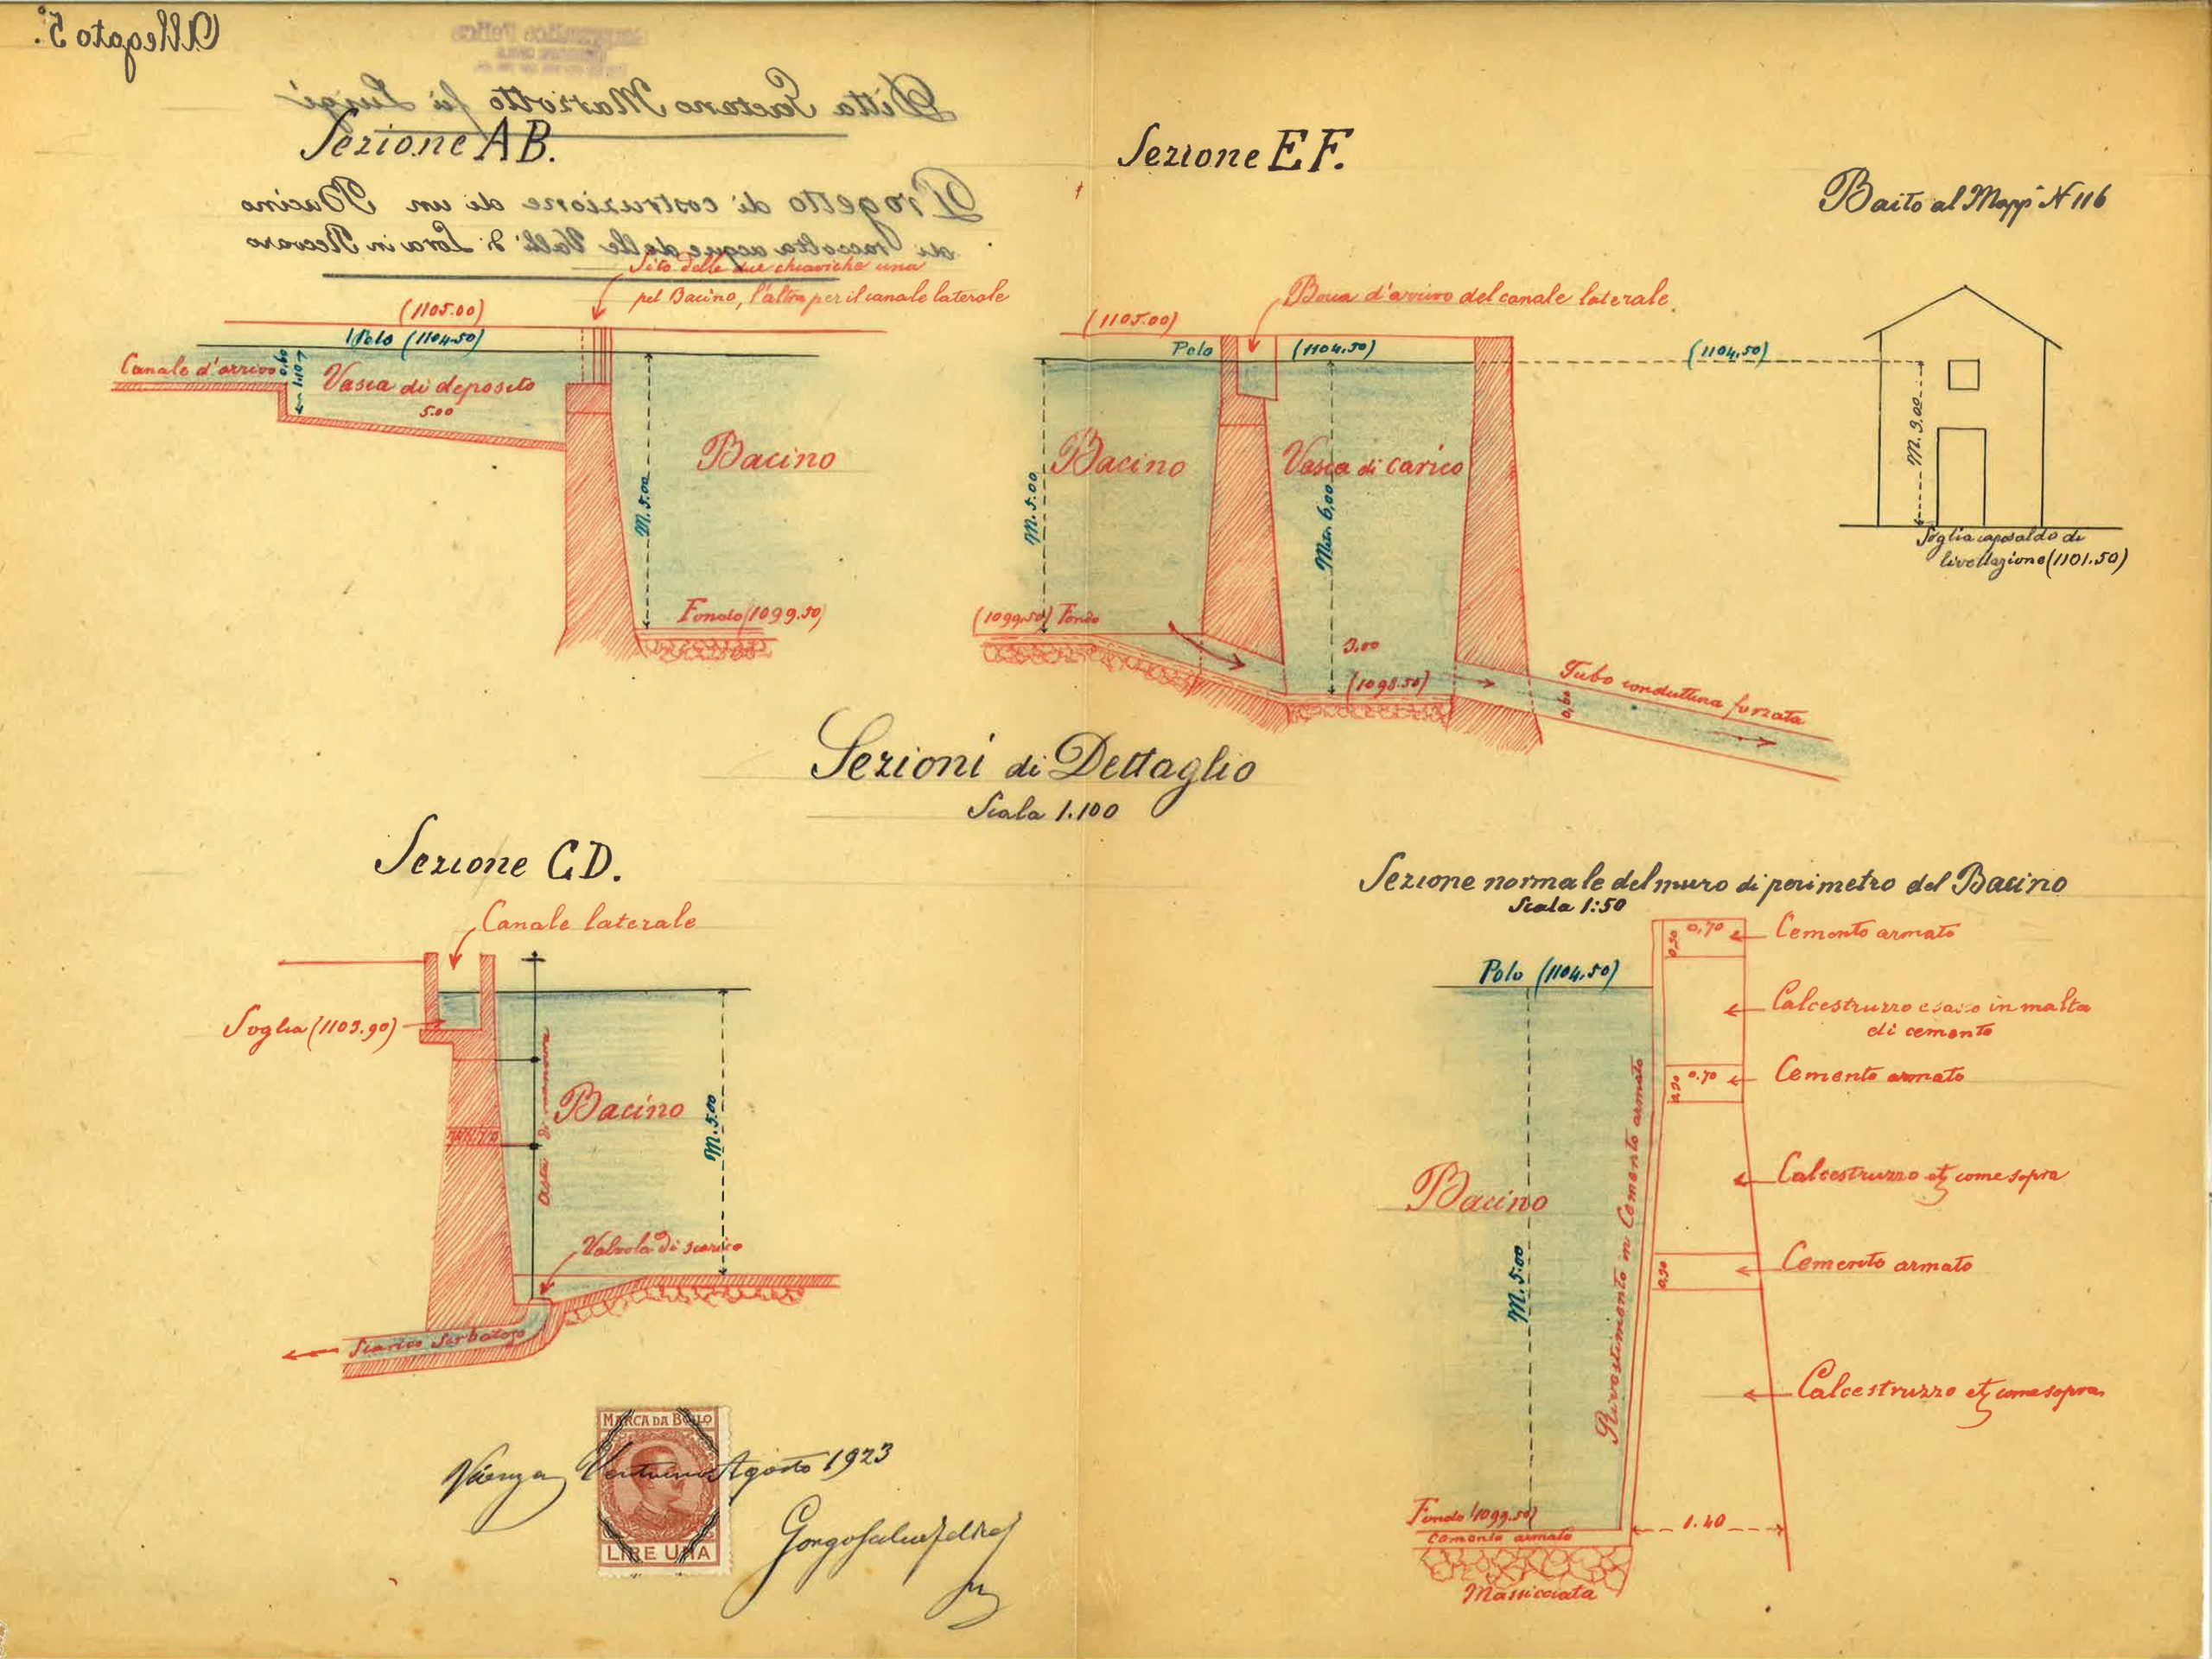 Allegato 5º.
Ditta Gaetano Marzotto fu Luigi
Progetto di costruzione di un Bacino
di raccolta acque delle Valli di Lora in Recoaro
Sezione AB.
Sito delle due chiaviche una
pel Bacino, l'altra per il canale laterale
(1105.00)
Pelo (1104.50)
Canale d'arrivo
0,60
1.10
Vasca di deposito
5.00
Bacino
M. 5.00
Fondo (1099.50)
Sezione EF.
Bocca d'arrivo del canale laterale.
(1105.00)
Pelo
(1104.50)
(1104,50)
Bacino
M. 5.00
Vasca di carico
Metri 6,00
(1099.50) Fondo
3.00
(1098.50)
Tubo conduttura forzata
0,60
Baito al Mapp. N 116
M. 3.00
Soglia caposaldo di
livellazione (1101.50)
Sezioni di Dettaglio
Scala 1.100
Sezione CD.
Canale laterale
Soglia (1103.90)
Bacino
Asta di manovra
M. 5.00
Valvola di scarico
Scarico Serbatoio
Sezione normale del muro di perimetro del Bacino
Scala 1:50
Pelo (1104,50)
0,30
0,70
Cemento armato
Calcestruzzo e sasso in malta
di cemento
0,30
0.70
Cemento armato
Calcestruzzo etc come sopra
0,30
Cemento armato
Calcestruzzo etc come sopra
Bacino
M. 5.00
Rivestimento in Cemento armato
Fondo (1099.50)
Cemento armato
1.40
Massicciata
MARCA DA BOLLO
LIRE UNA
Vicenza Ventuno Agosto 1923